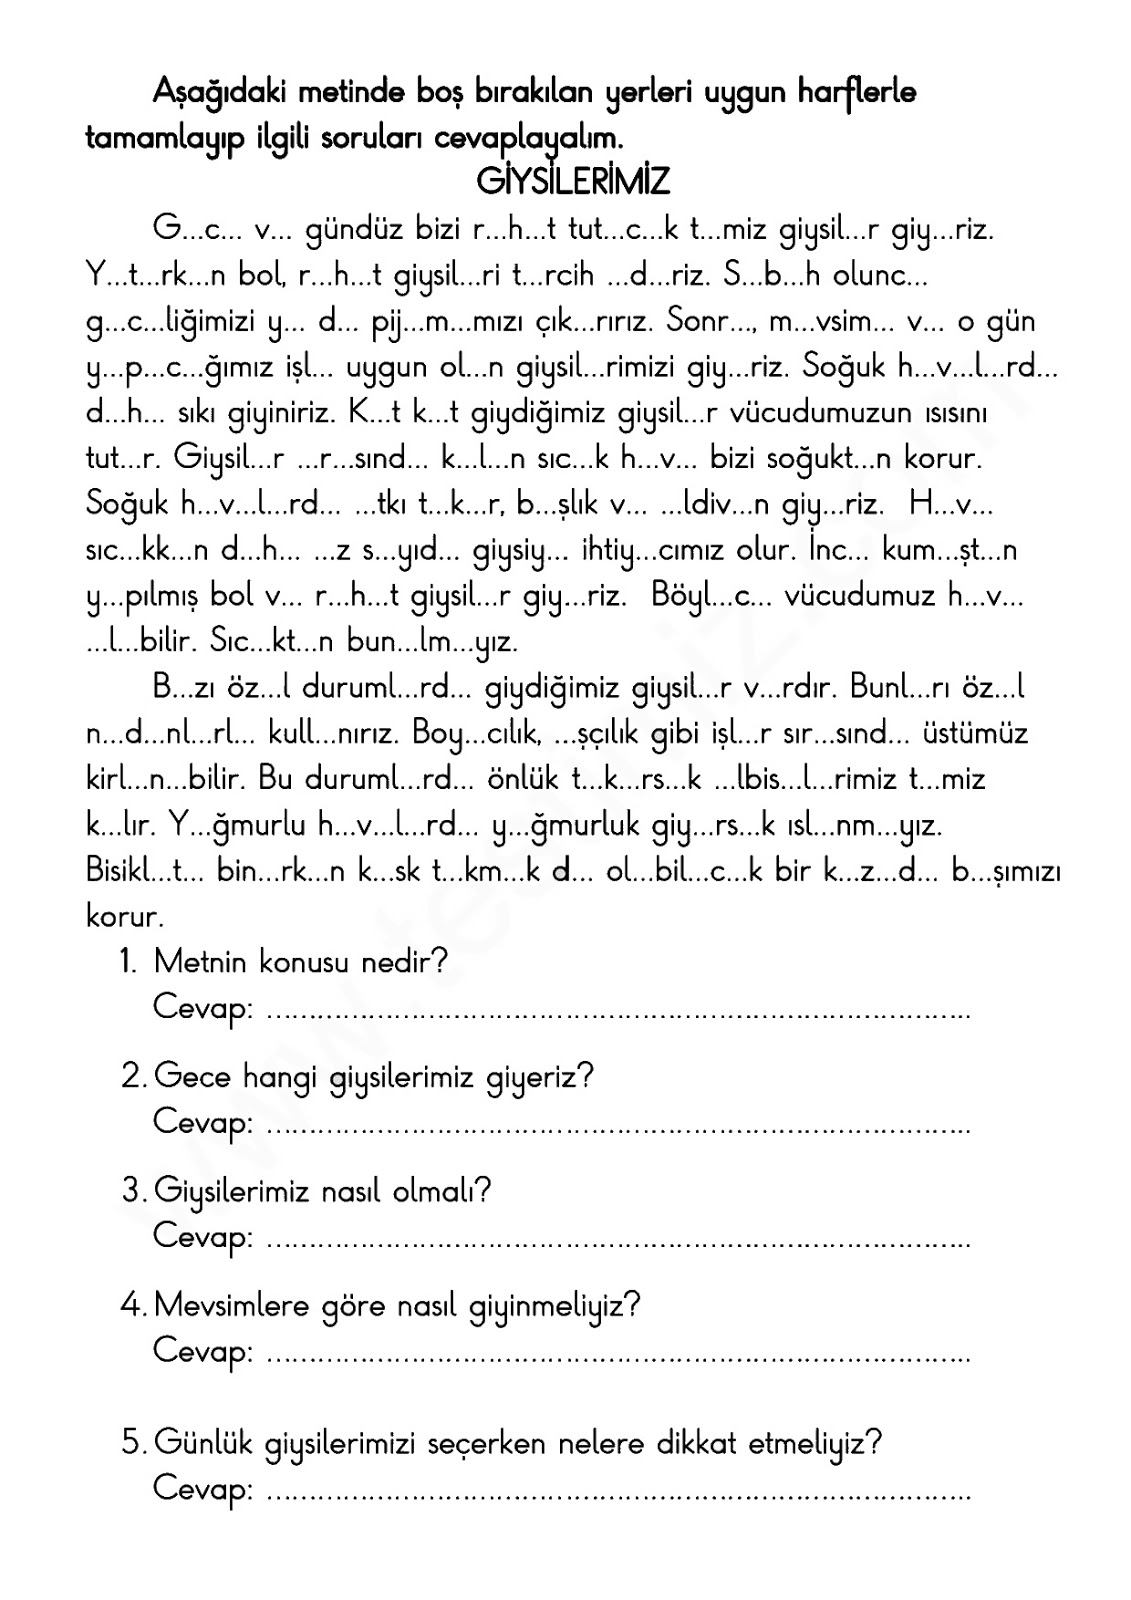 Aşağıdaki metinde boş bırakılan yerleri uygun harflerle
tamamlayıp ilgili soruları cevaplayalım.
GİYSİLERİMİZ
G...c... v... gündüz bizi r...h...t tut...c...k t...miz giysil...r giy...riz.
Y...t...rk...n bol, r...h...t giysil...ri t...rcih ...d...riz. S...b...h olunc...
g...c...liğimizi y... d... pij...m...mızı çık...rırız. Sonr..., m...vsim... v... o gün
y...p...c...ğımız işl... uygun ol...n giysil...rimizi giy...riz. Soğuk h...v...l...rd...
d...h... sıkı giyiniriz. K...t k...t giydiğimiz giysil...r vücudumuzun ısısını
tut...r. Giysil...r ...r...sınd... k...l...n sıc...k h...v... bizi soğukt...n korur.
Soğuk h...v...l...rd... ...tkı t...k...r, b...şlık v... ...ldiv...n giy...riz. H...v...
sıc...kk...n d...h... ...z s...yıd... giysiy... ihtiy...cımız olur. İnc... kum...şt...n
y...pılmış bol v... r...h...t giysil...r giy...riz. Böyl...c... vücudumuz h...v...
...l...bilir. Sıc...kt...n bun...lm...yız.
B...zı öz...l duruml...rd... giydiğimiz giysil...r v...rdır. Bunl...rı öz...l
n...d...nl...rl... kull...nırız. Boy...cılık, ...şçılık gibi işl...r sır...sınd... üstümüz
kirl...n...bilir. Bu duruml...rd... önlük t...k...rs...k ...lbis...l...rimiz t...miz
k...lır. Y...ğmurlu h...v...l...rd... y...ğmurluk giy...rs...k ısl...nm...yız.
Bisikl...t... bin...rk...n k...sk t...km...k d... ol...bil...c...k bir k...z...d... b...şımızı
korur.
1. Metnin konusu nedir?
Cevap: ....................................................................................
2. Gece hangi giysilerimiz giyeriz?
Cevap: ....................................................................................
3. Giysilerimiz nasıl olmalı?
Cevap: ....................................................................................
4. Mevsimlere göre nasıl giyinmeliyiz?
Cevap: ....................................................................................
5. Günlük giysilerimizi seçerken nelere dikkat etmeliyiz?
Cevap: ....................................................................................